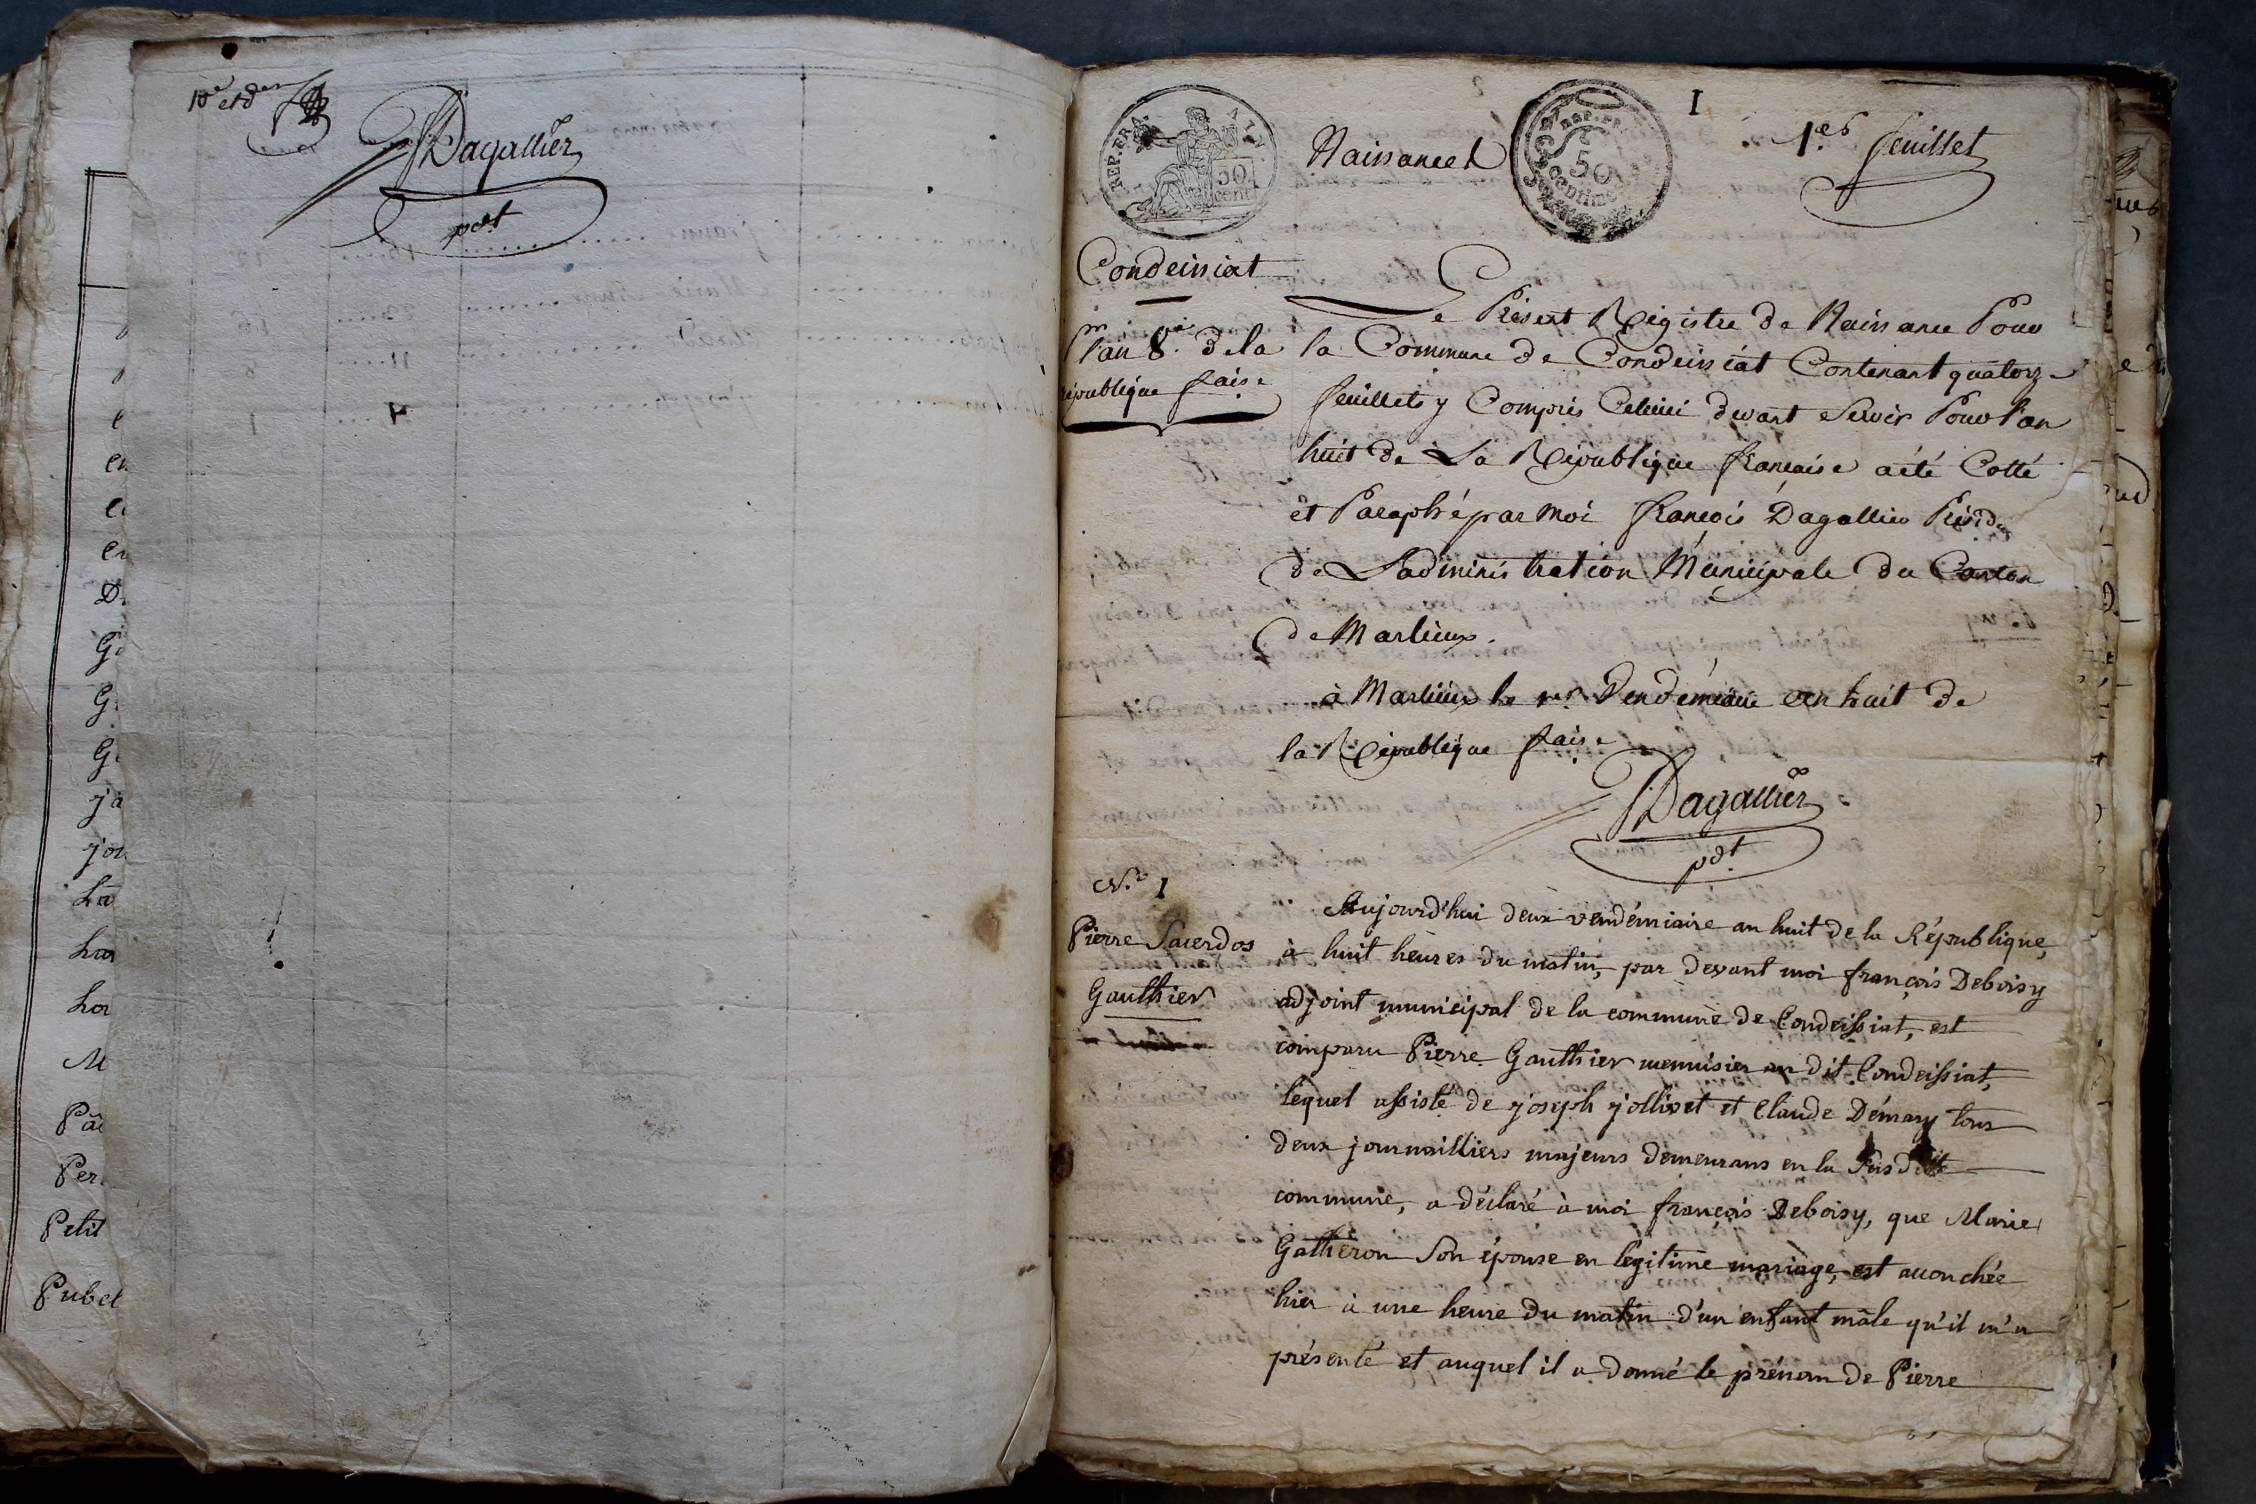 10e et der
Dagallier
pdt
REP. FRA.
50
cent
Naissances
REP. FRA
50
centimes
1
1er feuillet
Condeissiat
Pr
l'an 8e de la
république faise
Le Présent Régistre de Naissance Pour
la Commune de Condeissiat Contenant quatorze
feuillets y Compris Celuici devant Servir Pour l'an
huit de La République française a été Cotté
et Paraphé par Moi françois Dagallier Présidt
de Ladministration Municipale du Canton
de Marlieux.
à Marlieux le 1er Vendémiaire an huit de
la République faise
Dagallier
pdt
No 1
Pierre Sacerdos
Gauthier
Aujourd'hui deux vendémiaire an huit de la République,
à huit heures du matin, par devant moi françois Deboisy
adjoint municipal de la commune de Condeissiat, est
comparu Pierre Gauthier menuisier au dit Condeissiat,
lequel assisté de joseph jollivet et Claude Démary tous
deux journailliers majeurs demeurans en la susdite
commune, a déclaré à moi françois Deboisy, que Marie
Gatheron son épouse en légitime mariage, est accouchée
hier à une heure du matin d'un enfant mâle qu'il m'a
présenté et auquel il a donné le prénom de Pierre
D.
G.
G.
ja
jou
La
M
Pa
Per
Petit
Pubel